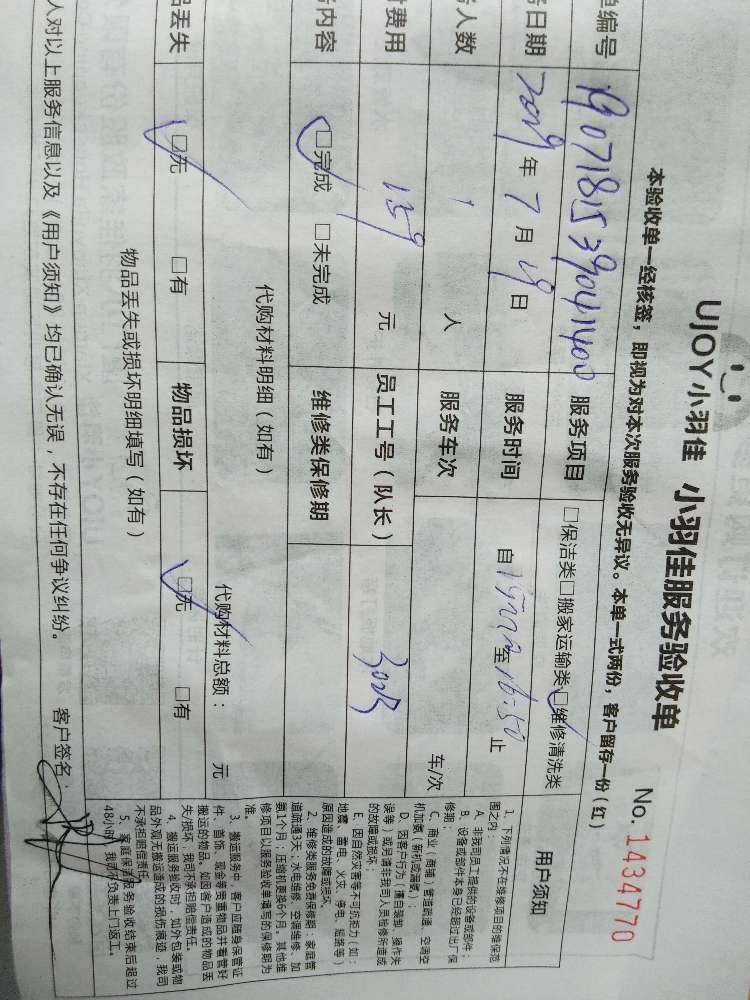 UJOY小羽佳 小羽佳服务验收单
No. 1434770
本验收单一经核签，即视为对本次服务验收无异议。本单一式两份，客户留存一份（红）
单编号 服务项目 □保洁类□搬家运输类□维修清洗类
务日期 2019年7月19日 服务时间 自 至16:50止
务人数 1 人 服务车次 车/次
费用 159 元 员工工号（队长）
务内容 □完成 □未完成 维修类保修期
代购材料明细（如有） 代购材料总额： 元
品丢失 □无 □有 物品损坏 □无 □有
物品丢失或损坏明细填写（如有）
人对以上服务信息以及《用户须知》均已确认无误，不存在任何争议纠纷。 客户签名：
用户须知
1、下列情况不在维修项目的维保范
围之内：
A、非我司员工提供的设备或部件；
B、设备或部件本身已经超过出厂保
修期；
C、商业（商铺）管道疏通、空调空
机加氨（新机或漏氨）；
D、因客户行为（擅自装卸、操作失
误等）或另请非我司人员检修所造成
的故障或损坏；
E、因自然灾害等不可抗拒力（如：
地震、雷电、火灾、停电、短路等）
原因造成的故障或损坏
2、维修类服务免费保修期：家庭管
道疏通3天；水电维修、空调维修、加
氨1个月；压缩机更换6个月。其他维
修项目以服务验收单填写的保修期为
准。
3、搬运服务中，客户应随身保管证
件、首饰、现金等贵重物品并看管好
搬运的物品。如因客户造成的物品丢
失/损坏，我司不承担赔偿责任。
4、搬运服务验收时，如外包装或物
品外观无搬运造成的损伤痕迹，我司
不承担赔偿责任。
5、家庭保洁服务验收结束后超过
48小时，我司不负责上门返工。